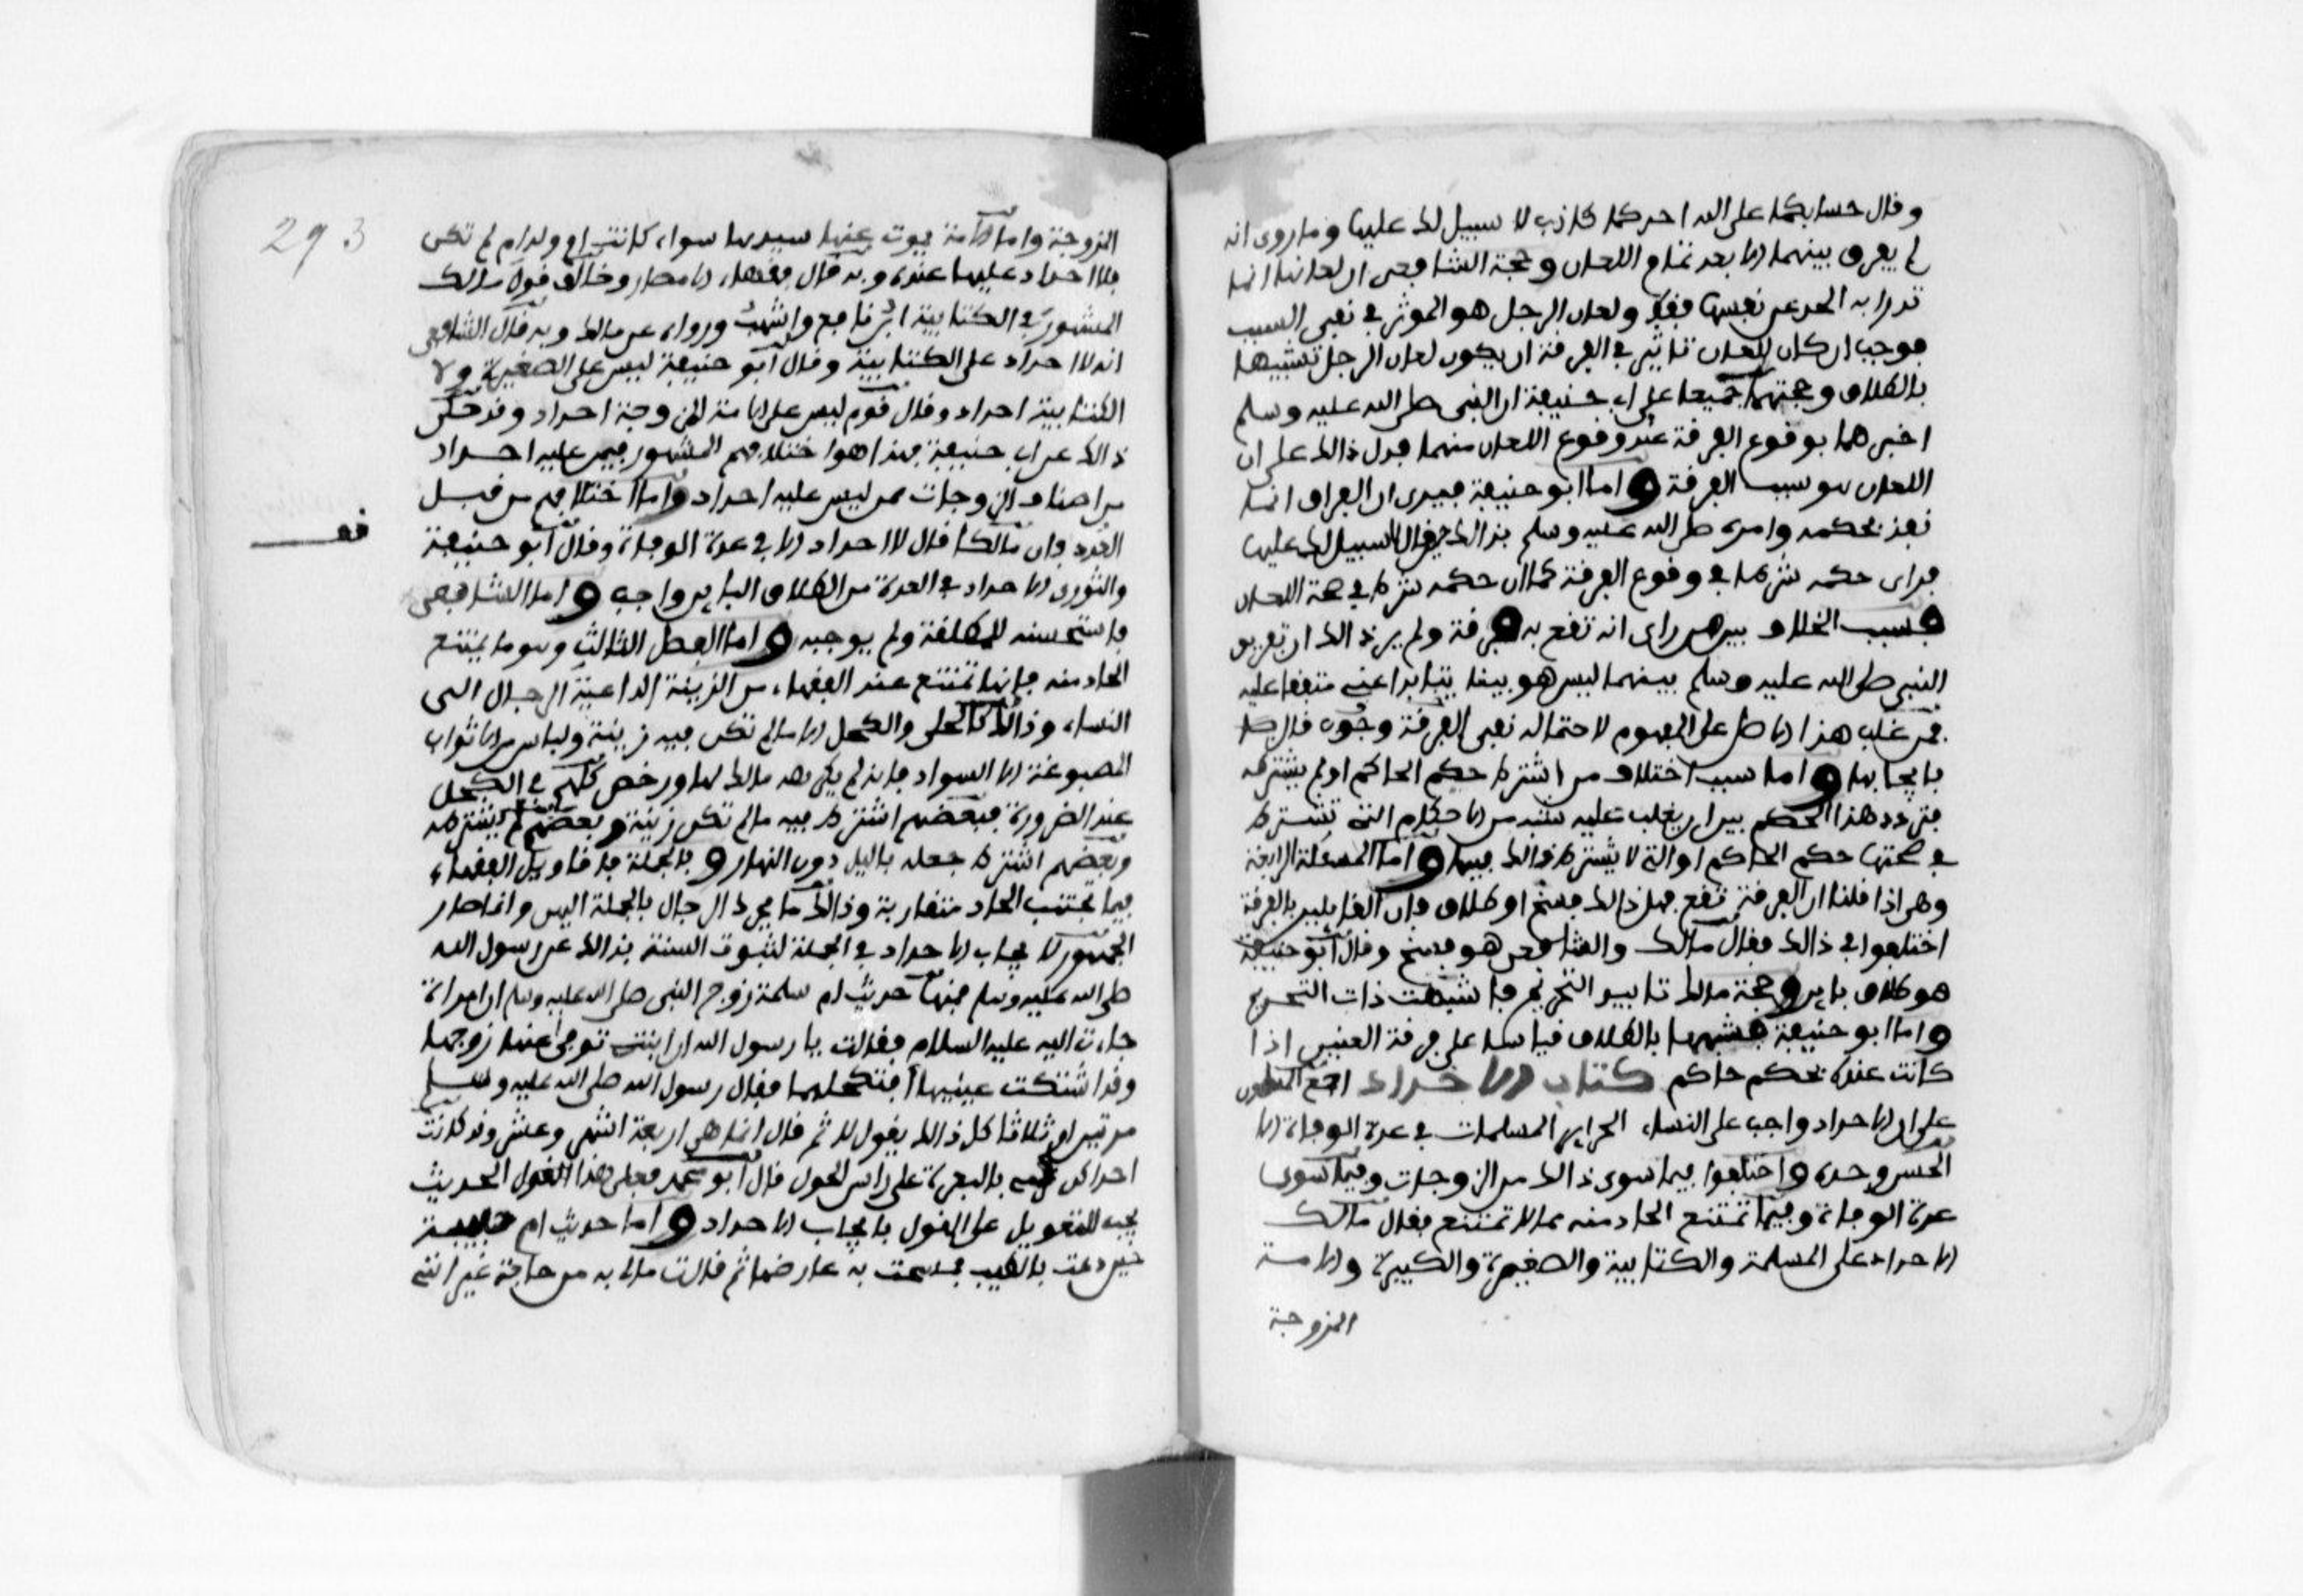 وقال حسابكما على الله احدكما كاذب لا سبيل لك عليها وما روى انه
لم يفرق بينهما الا بعد تمام اللعان وحجة الشافعى ان لعانها انما
تدرا به الحد عن نفسها فقط ولعان الرجل هو الموثر فى نفى النسب
فوجب ان كان للعان تاثير فى الفرقة ان يكون لعان الرجل تشبيها
بالطلاق وحجتهما جميعا على ابى حنيفة ان النبى صلى الله عليه وسلم
اخبرهما بوقوع الفرقة عند وقوع اللعان منهما فدل ذالك على ان
اللعان هو سبب الفرقة واما ابو حنيفة فيرى ان الفراق انما
نفذ بحكمه وامره صلى الله عليه وسلم بذالك حين قال لا سبيل لك عليها
فراى حكمه شرطا فى وقوع الفرقة كما ان حكمه شرط فى صحة اللعان
فسبب الخلاف بين من راى انه تقع به فرقة ولم ير ذالك ان تفريق
النبى صلى الله عليه وسلم بينهما ليس هو بينا بنفسه متفقا عليه
فمن غلب هذا الاصل على المفهوم لاحتماله نفى الفرقة وجوب قال
بايجابها واما سبب اختلاف من اشترط حكم الحاكم او لم يشترطه
فتردد هذا الحكم بين ان يغلب عليه شبه من الاحكام التى تشترط
فى صحتها حكم الحاكم او التى لا يشترط ذالك فيها واما المسئلة الرابعة
وهى اذا قلنا ان الفرقة تقع فهل ذالك فسخ او طلاق فان القايلين بالفرقة
اختلفوا فى ذالك فقال مالك والشافعى هو فسخ وقال ابو حنيفة
هو طلاق باين وحجة مالك تابيد التحريم فاشبهت ذات التحريم
واما ابو حنيفة فشبهها بالطلاق قياسا على فرقة العنين اذا
كانت عنده بحكم حاكم كتاب الاحداد اجمع المسلمون
على ان الاحداد واجب على النساء الحراير المسلمات فى عدة الوفاة الا
الحسن وحده واختلفوا فيما سوى ذالك من الزوجات وفيما سوى
عدة الوفاة وفيما تمتنع الحاد منه مما لا تمتنع فقال مالك
الاحداد على المسلمة والكتابية والصغيرة والكبيرة والامة
المزوجة
293
المزوجة واما الامة يموت عنها سيدها سواء كانت ام ولد ام لم تكن
فلا احداد عليها عنده وبه قال فقهاء الامصار وخالف قول مالك
المشهور فى الكتابية ابن نافع واشهب وروياه عن مالك وبه قال الشافعى
انه لا احداد على الكتابية وقال ابو حنيفة ليس على الصغيرة ولا
الكتابية احداد وقال قوم ليس على الامة المزوجة احداد وقد حكى
ذالك عن ابى حنيفة فهذا هو اختلافهم المشهور فيمن عليه احداد
من اصناف الزوجات ممن ليس عليه احداد واما اختلافهم من قبل
العدد فان مالكا قال لا احداد الا فى عدة الوفاة وقال ابو حنيفة
قف
والثورى الاحداد فى العدة من الطلاق الباين واجب واما الشافعى
فاستحسنه للمطلقة ولم يوجبه واما الفصل الثالث وهو ما يمتنع
الحاد منه فانها تمتنع عند الفقهاء من الزينة الداعية الرجال الى
النساء وذالك كالحلى والكحل الا ما لم تكن فيه زينة ولباس من الاثواب
المصبوغة الا السواد فانه لم يكره مالك لها ورخص كلهم فى الكحل
عند الضرورة فبعضهم اشترط فيه ما لم تكن زينة وبعضهم لم يشترطه
وبعضهم اشترط جعله باليل دون النهار وبالجملة فاقاويل الفقهاء
فيما تجتنب الحاد متقاربة وذالك ما يحرك الرجال بالجملة اليهن وانما صار
الجمهور لايجاب الاحداد فى الجملة لثبوت السنة بذالك عن رسول الله
صلى الله عليه وسلم فمنها حديث ام سلمة زوج النبى صلى الله عليه وسلم ان امراة
جاءت اليه عليه السلام فقالت يا رسول الله ان ابنتى توفى عنها زوجها
وقد اشتكت عينيها افتكحلهما فقال رسول الله صلى الله عليه وسلم لا
مرتين او ثلاثا كل ذالك يقول لا ثم قال انما هى اربعة اشهر وعشر وقد كانت
احداكن ترمى بالبعرة على راس الحول قال ابو محمد فعلى هذا القول الحديث
يجب التعويل على القول بايجاب الاحداد واما حديث ام حبيبة
حين دعت بالطيب فمسحت به عارضها ثم قالت مالى به من حاجة غير انى